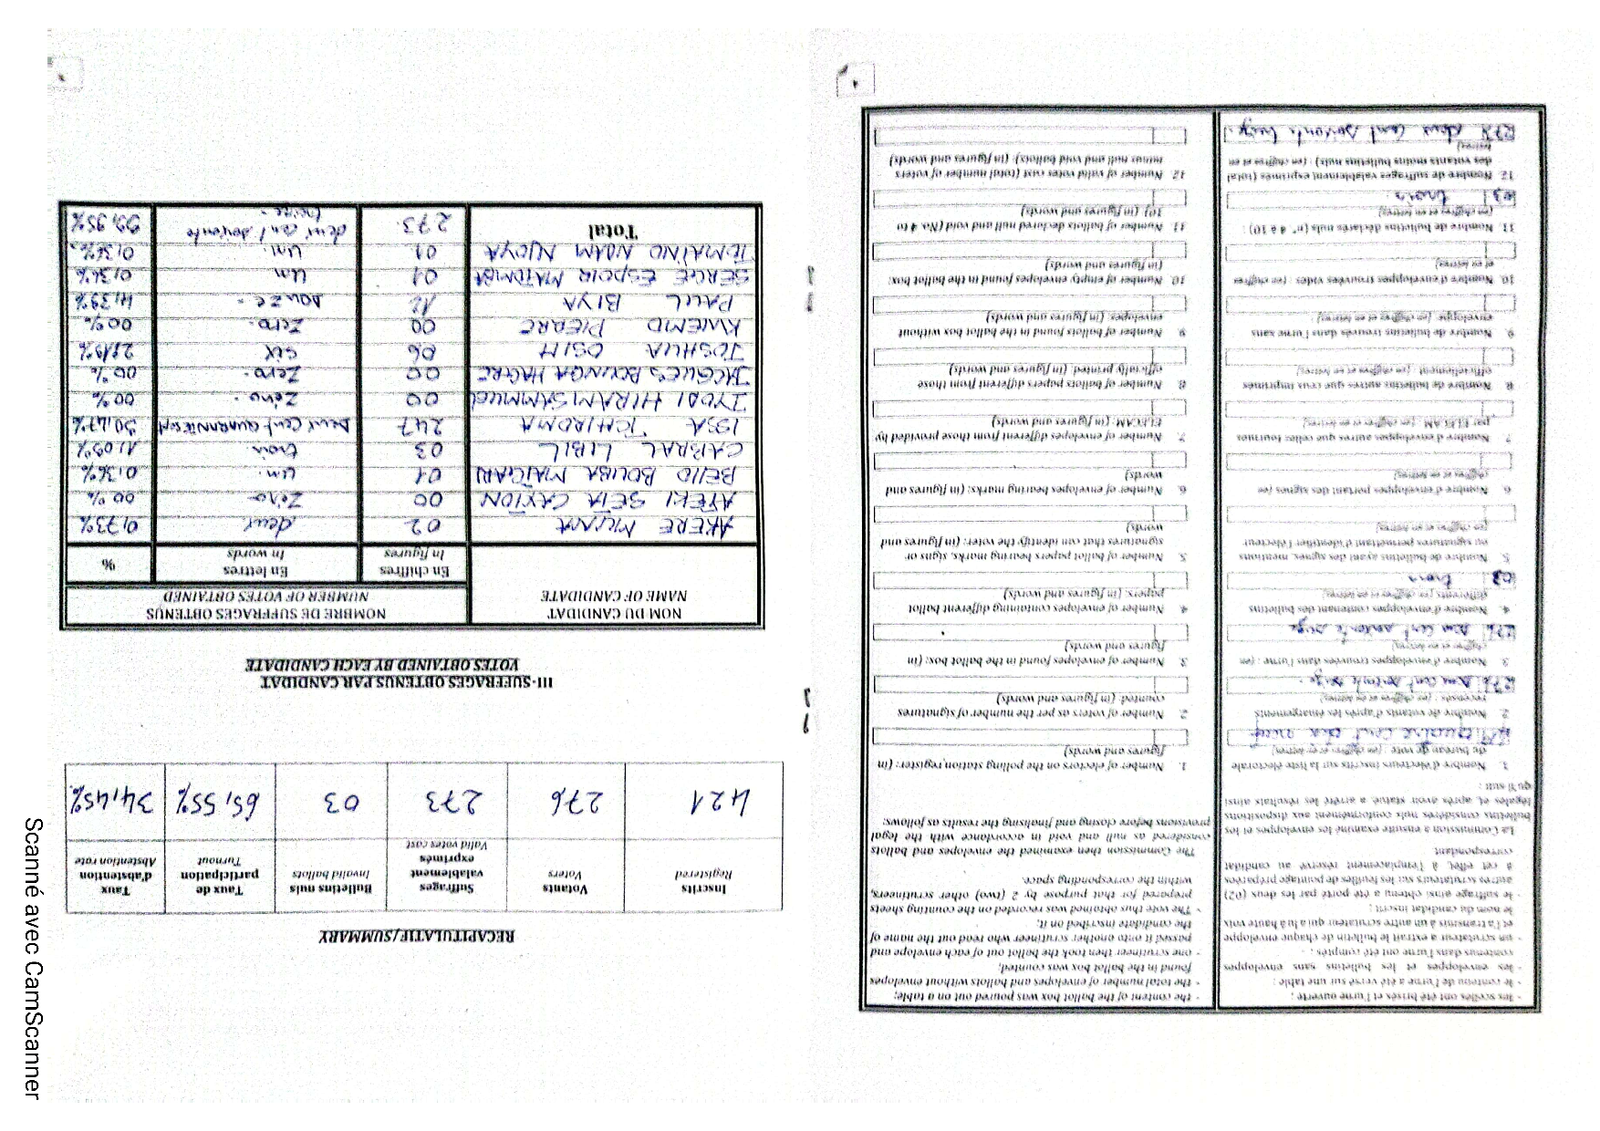 - les scellés ont été brisés et l'urne ouverte ;
- le contenu de l'urne a été versé sur une table ;
- les enveloppes et les bulletins sans enveloppes
contenus dans l'urne ont été comptés ;
- un scrutateur a extrait le bulletin de chaque enveloppe
et l'a transmis à un autre scrutateur qui a lu à haute voix
le nom du candidat inscrit ;
- le suffrage ainsi obtenu a été porté par les deux (02)
autres scrutateurs sur les feuilles de pointage préparées
à cet effet, à l'emplacement réservé au candidat
correspondant.
La Commission a ensuite examiné les enveloppes et les
bulletins considérés nuls conformément aux dispositions
légales et, après avoir statué, a arrêté les résultats ainsi
qu'il suit :
1. Nombre d'électeurs inscrits sur la liste électorale
du bureau de vote : (en chiffres et en lettres)
quatre cent
2. Nombre de votants d'après les émargements
recensés : (en chiffres et en lettres)
276 deux cent soixante seize
3. Nombre d'enveloppes trouvées dans l'urne : (en
chiffres et en lettres)
276 deux cent soixante seize
4. Nombre d'enveloppes contenant des bulletins
différents (en chiffres et en lettres)
03 trois
5. Nombre de bulletins ayant des signes, mentions
ou signatures permettant d'identifier l'électeur
(en chiffres et en lettres)
6. Nombre d'enveloppes portant des signes (en
chiffres et en lettres)
7. Nombre d'enveloppes autres que celles fournies
par ELECAM (en chiffres et en lettres)
8. Nombre de bulletins autres que ceux imprimés
officiellement (en chiffres et en lettres)
9. Nombre de bulletins trouvés dans l'urne sans
enveloppe (en chiffres et en lettres) :
10. Nombre d'enveloppes trouvées vides : (en chiffres
et en lettres)
11. Nombre de bulletins déclarés nuls (n° 4 à 10) :
(en chiffres et en lettres)
03 trois
12. Nombre de suffrages valablement exprimés (total
des votants moins bulletins nuls) : (en chiffres et en
lettres)
273 deux cent soixante treize
- the content of the ballot box was poured out on a table;
- the total number of envelopes and ballots without envelopes
found in the ballot box was counted;
- one scrutineer then took the ballot out of each envelope and
passed it onto another scrutineer who read out the name of
the candidate inscribed on it;
- The vote thus obtained was recorded on the counting sheets
prepared for that purpose by 2 (two) other scrutineers,
within the corresponding space.
The Commission then examined the envelopes and ballots
considered as null and void in accordance with the legal
provisions before closing and finalising the results as follows:
1. Number of electors on the polling station register: (in
figures and words)
2. Number of voters as per the number of signatures
counted: (in figures and words)
3. Number of envelopes found in the ballot box: (in
figures and words)
4. Number of envelopes containing different ballot
papers: (in figures and words)
5. Number of ballot papers bearing marks, signs or
signatures that can identify the voter: (in figures and
words)
6. Number of envelopes bearing marks: (in figures and
words)
7. Number of envelopes different from those provided by
ELECAM: (in figures and words)
8. Number of ballots papers different from those
officially printed: (in figures and words)
9. Number of ballots found in the ballot box without
envelopes: (in figures and words)
10. Number of empty envelopes found in the ballot box:
(in figures and words)
11. Number of ballots declared null and void (No. 4 to
10) (in figures and words)
12. Number of valid votes cast (total number of voters
minus null and void ballots): (in figures and words)
RECAPITULATIF/SUMMARY
Inscrits Registered Votants Voters Suffrages valablement exprimés Valid votes cast Bulletins nuls Invalid ballots Taux de participation Turnout Taux d'abstention Abstention rate
421 276 273 03 65,55% 34,45%
III-SUFFRAGES OBTENUS PAR CANDIDAT
VOTES OBTAINED BY EACH CANDIDATE
NOM DU CANDIDAT NAME OF CANDIDATE NOMBRE DE SUFFRAGES OBTENUS NUMBER OF VOTES OBTAINED
En chiffres In figures En lettres In words %
AKERE MUNA 02 deux 0,73%
AYEKI SETA CAXTON 00 Zéro 00%
BELLO BOUBA MAIGARI 01 un. 0,36%
CABRAL LIBIL 03 trois 1,09%
ISSA TCHIROMA 247 Deux Cent quarante sept 90,47%
IYODI HIRAM SAMMUEL 00 Zéro. 00%
JACQUES BOUNGA HAGORE 00 Zero. 00%
JOSHUA OSIH 06 Six 2,19%
KWEMO PIERRE 00 Zero. 00%
PAUL BIYA 12 DOUZE. 4,39%
SERGE ESPOIR MATOMBA 01 un 0,36%
TOMAINO NDAM NJOYA 01 un. 0,36%
Total 273 deux cent soixante treize. 99,95%
Scanné avec CamScanner